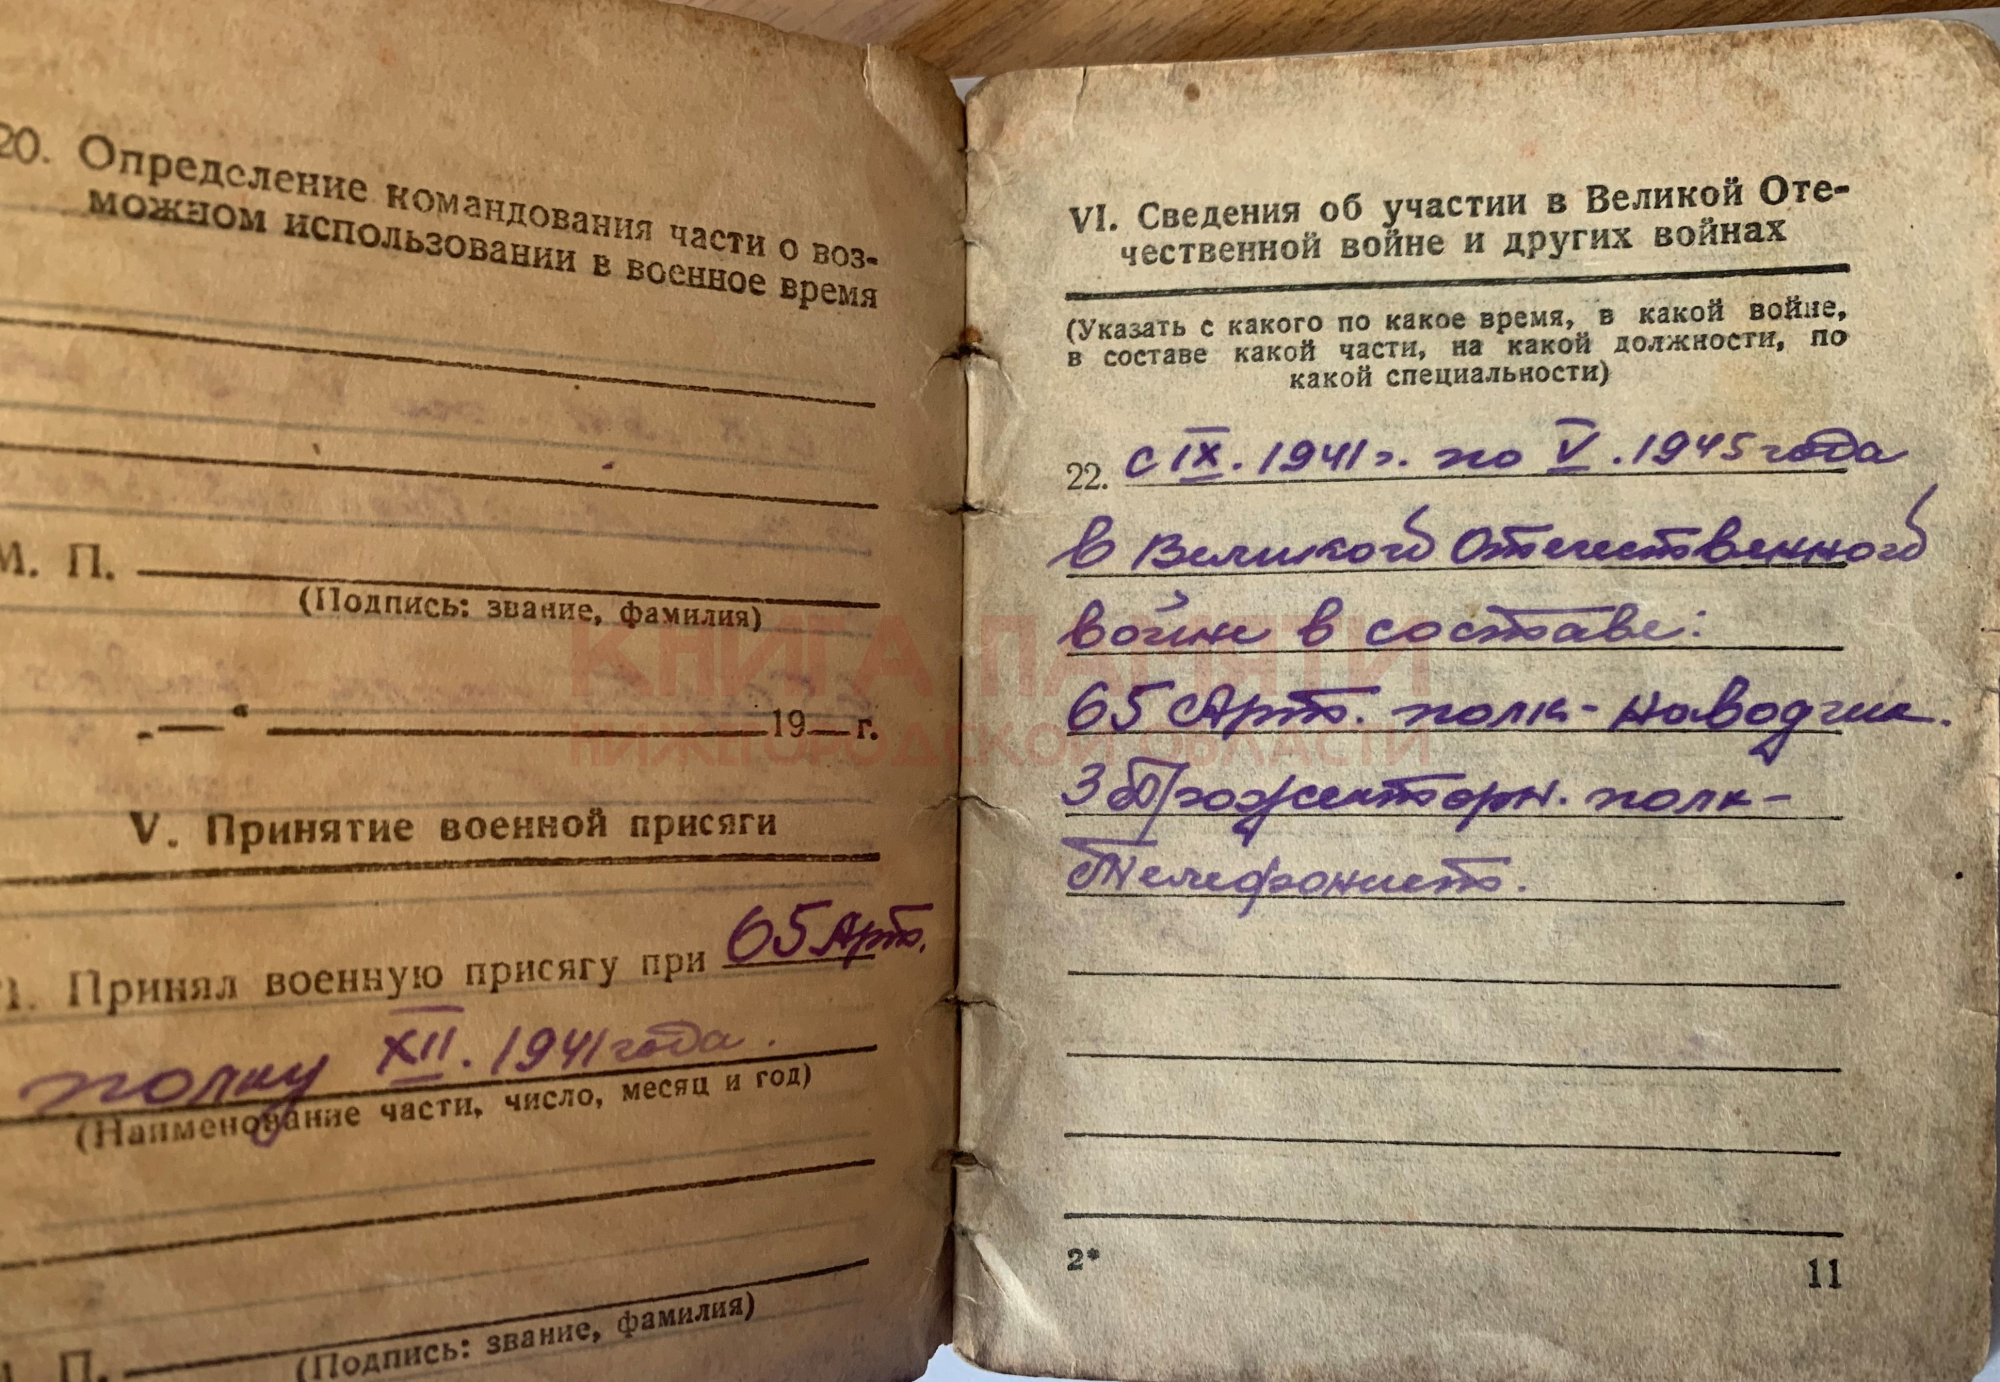 20. Определение командования части о воз-
можном использовании в военное время
М. П.
(Подпись: звание, фамилия)
„ — “ 19 — г.
V. Принятие военной присяги
1. Принял военную присягу при 65 Арт.
полку XII. 1941 года.
(Наименование части, число, месяц и год)
П.
(Подпись: звание, фамилия)
VI. Сведения об участии в Великой Оте-
чественной войне и других войнах
(Указать с какого по какое время, в какой войне,
в составе какой части, на какой должности, по
какой специальности)
22. с IX. 1941 г. по V. 1945 года
в Великой Отечественной
войне в составе:
65 Арт. полк - наводчик.
3 Прожекторн. полк -
Телефонист.
2*
11
КНИГА ПАМЯТИ
НИЖЕГОРОДСКОЙ ОБЛАСТИ